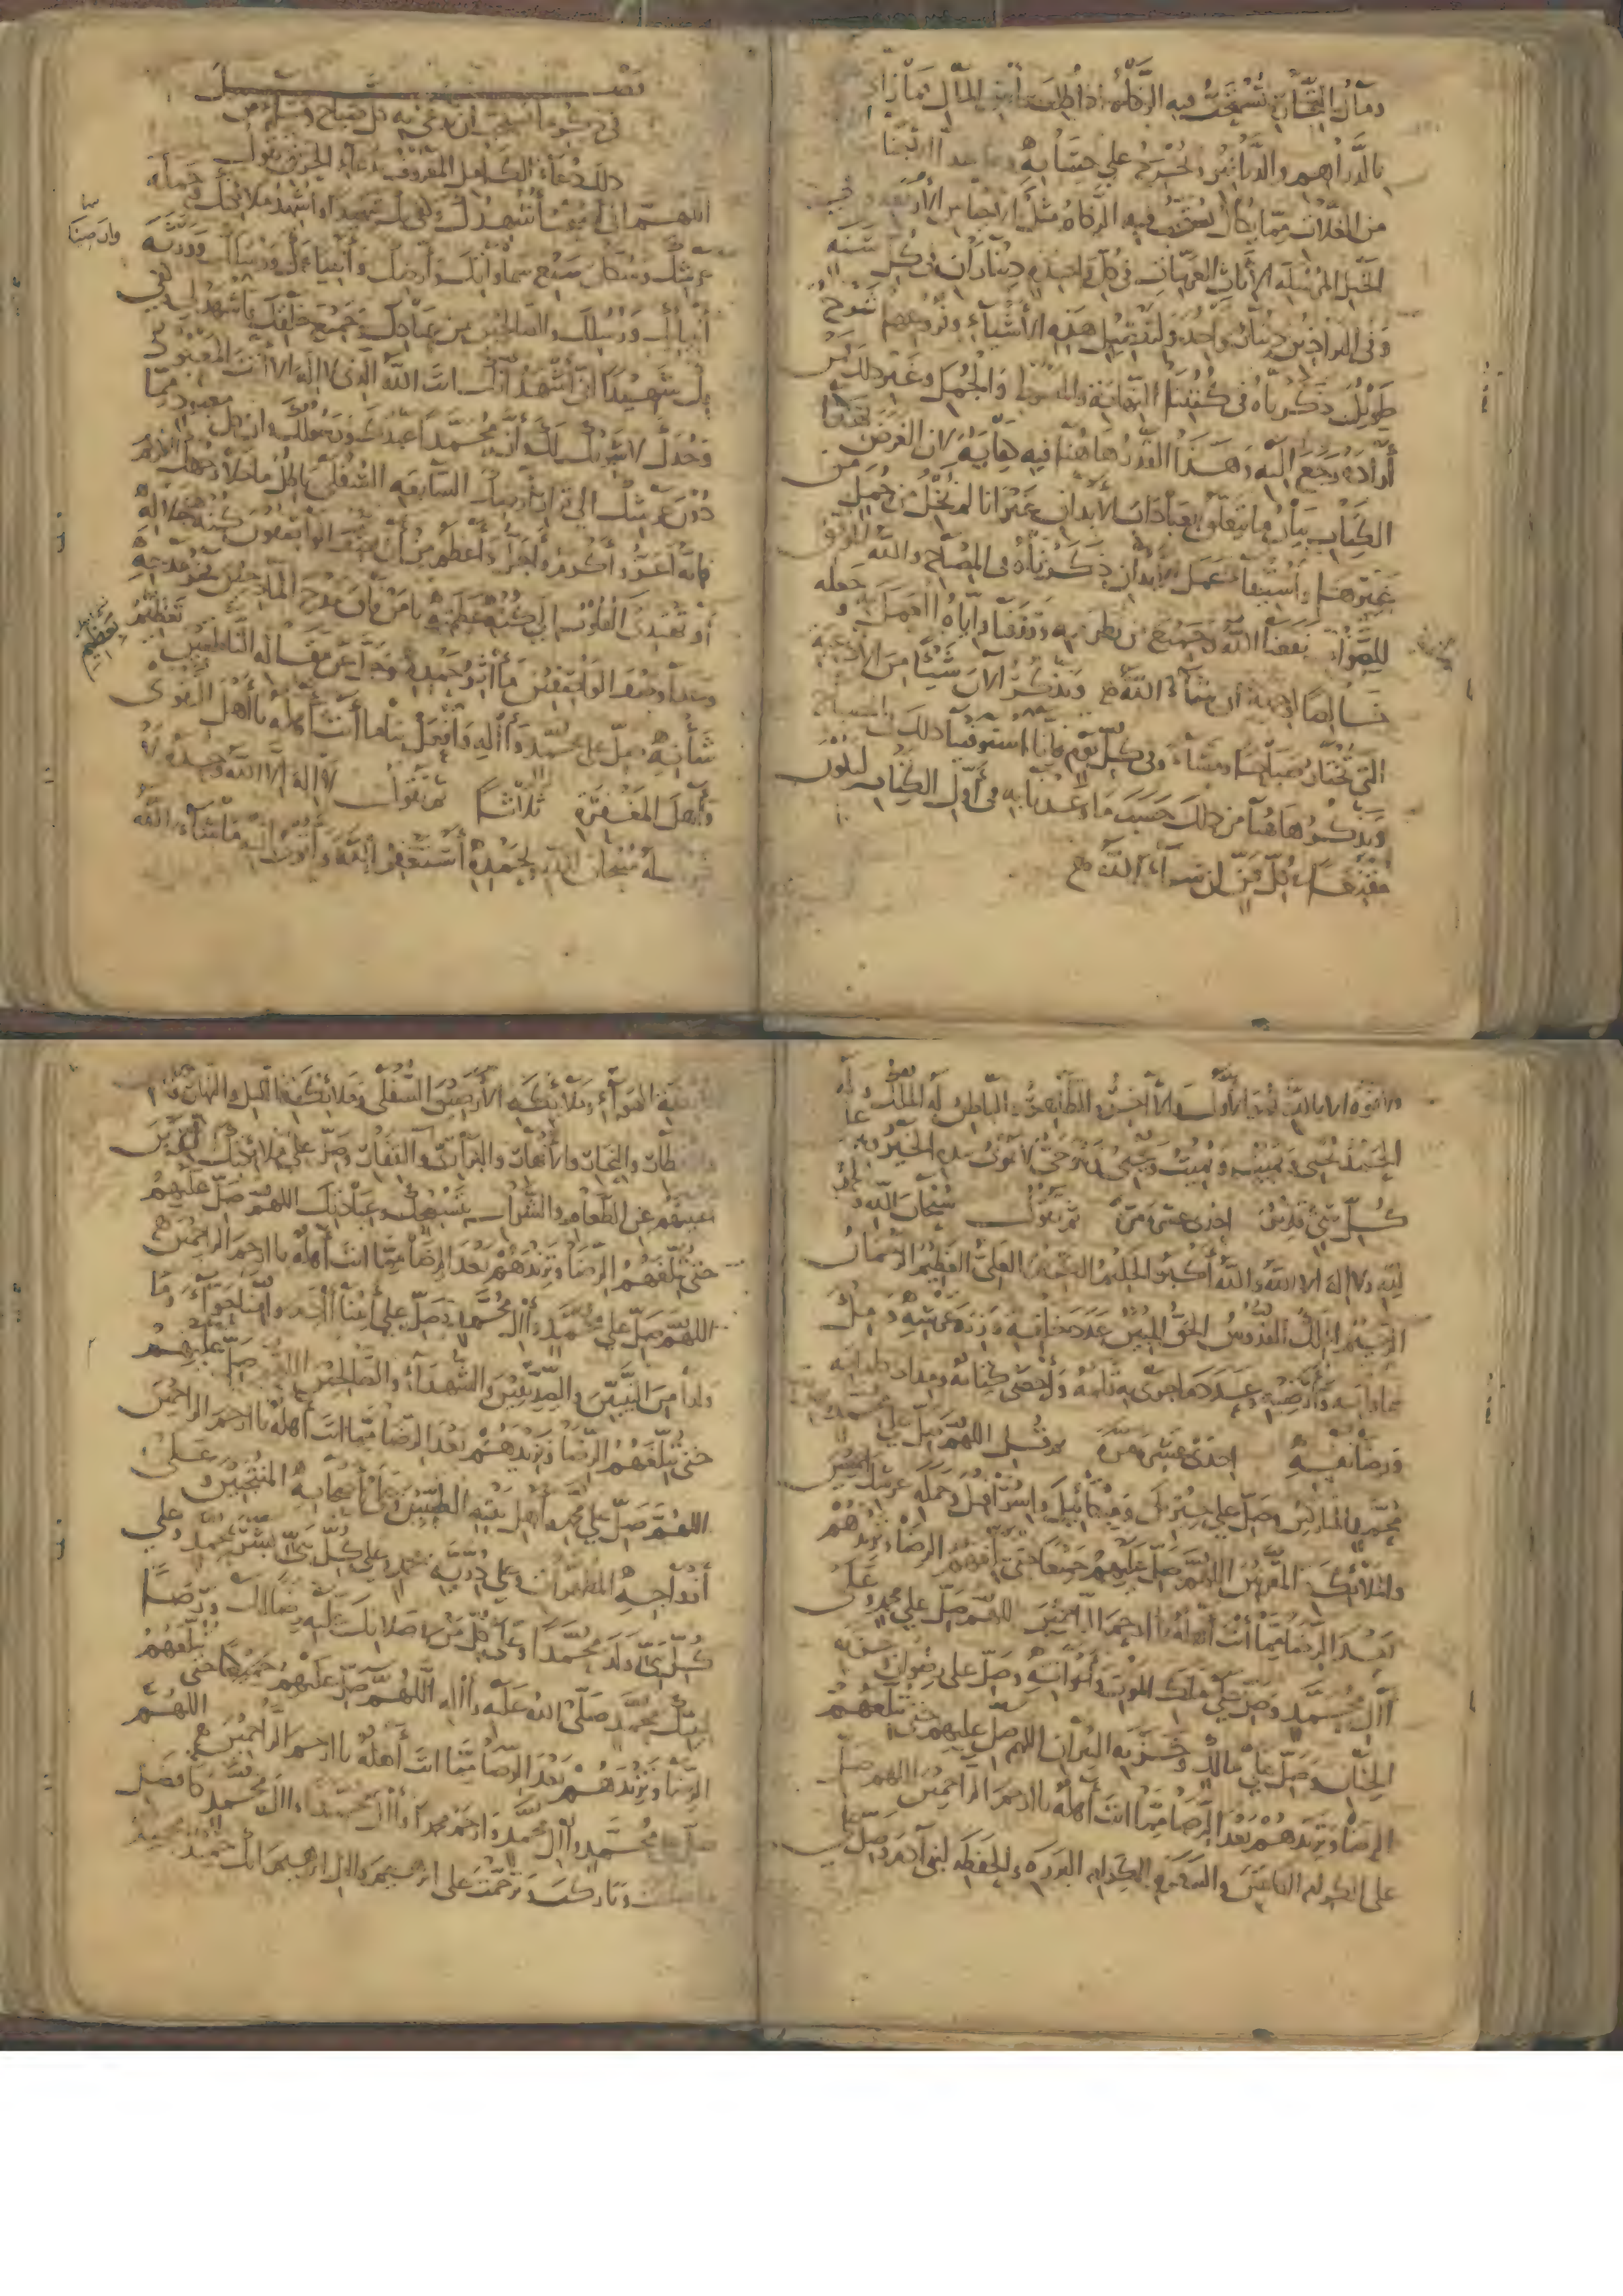 ومال التجارة تستحب فيه الزكاة إذا طلبت برأس المال فما زاد
بالدراهم والدنانير وتخرج على حسابه وما عدا الأربعة
من الغلات مما يكال يستحب فيه الزكاة مثل الأجناس الأربعة وفي
الخيل المرسلة الإناث العربيات في كل واحدة ديناران في كل سنة
وفي البراذين دينار واحد ولتفصيل هذه الأشياء وفروعها شروح
طويل ذكرناه في كتبنا النهاية والمبسوط والجمل وغير ذلك من
أراده رجع إليه وهذا القدر هاهنا فيه كفاية لأن الغرض بهذا
الكتاب بيان ما يتعلق بعبادات الأبدان غير أنا لم نخل من جمل من
غيرها واستيفاء عمل الأبدان ذكرناه في المصباح والله الموفق
للصواب نفعنا الله وجميع من نظر فيه ووفقنا وإياه العمل به وجعله
خالصا لوجهه إن شاء الله ونذكر الآن شيئا من الأدعية
التي تختار صباحا ومساء وفي كل يوم فإنا استوفينا ذلك في المصباح
ونذكر هاهنا من ذلك حسب ما وعدنا به في أول الكتاب ليكون
مقنعا في كل فن إن شاء الله
فصل
في ذكر ما يستحب أن يدعى به كل صباح ومساء من
ذلك دعاء الكامل المعروف بدعاء الحريق تقول
اللهم إني أصبحت أشهدك وكفى بك شهيدا وأشهد ملائكتك وحملة
عرشك وسكان سبع سماواتك وأرضك وأنبياءك ورسلك وورثة
أنبيائك ورسلك والصالحين من عبادك وجميع خلقك فاشهد لي وكفى
بك شهيدا أني أشهد أنك أنت الله الذي لا إله إلا أنت المعبود
وحدك لا شريك لك وأن محمدا عبدك ورسولك وأن كل معبود مما
دون عرشك إلى قرار أرضك السابعة السفلى باطل ما خلا وجهك الكريم
فإنه أعز وأكرم وأجل وأعظم من أن يصف الواصفون كنه جلاله
أو تهتدي القلوب إلى كنه عظمته يا من فاق مدح المادحين فخر مدحه
وعدا وصف الواصفين مآثر حمده وجل عن مقالة الناطقين تعظيم
شأنه صل على محمد وآله وافعل بنا ما أنت أهله يا أهل التقوى
وأهل المغفرة ثلاثا ثم تقول لا إله إلا الله وحده لا
شريك له سبحان الله وبحمده أستغفر الله وأتوب إليه ما شاء الله
وأرضيك
تعظيم
ولا قوة إلا بالله هو الأول والآخر والظاهر والباطن له الملك وله
الحمد يحيي ويميت ويميت ويحيي وهو حي لا يموت بيده الخير وهو على
كل شيء قدير إحدى عشرة مرة ثم تقول سبحان الله والحمد
لله ولا إله إلا الله والله أكبر الحليم الكريم العلي العظيم الرحمان
الرحيم الملك القدوس الحق المبين عدد خلقه وزنة عرشه وملء
سماواته وأرضيه وعدد ما جرى به قلمه وأحصى كتابه ومداد كلماته
ورضا نفسه إحدى عشرة مرة ثم قل اللهم صل على محمد وأهل بيت
محمد المباركين وصل على جبرئيل وميكائيل وإسرافيل وحملة عرشك أجمعين
والملائكة المقربين اللهم صل عليهم جميعا حتى تبلغهم الرضا وتزيدهم
بعد الرضا مما أنت أهله يا أرحم الراحمين اللهم صل على محمد وعلى
آل محمد وصل على ملك الموت وأعوانه وصل على رضوان وخزنة
الجنان وصل على مالك وخزنة النيران اللهم صل عليهم حتى تبلغهم
الرضا وتزيدهم بعد الرضا مما أنت أهله يا أرحم الراحمين اللهم صل
على الكرام الكاتبين والسفرة الكرام البررة والحفظة لبني آدم وصل على
ملائكة الهواء وملائكة الأرضين السفلى وملائكة الليل والنهار والأرض
والأقطار والبحار والأنهار والبراري والقفار وصل على ملائكتك الذين
أغنيتهم عن الطعام والشراب بتسبيحك وعبادتك اللهم صل عليهم
حتى تبلغهم الرضا وتزيدهم بعد الرضا مما أنت أهله يا أرحم الراحمين
اللهم صل على محمد وآل محمد وصل على أبينا آدم وأمنا حواء وما
ولدا من النبيين والصديقين والشهداء والصالحين اللهم صل عليهم
حتى تبلغهم الرضا وتزيدهم بعد الرضا مما أنت أهله يا أرحم الراحمين
اللهم صل على محمد وأهل بيته الطيبين وعلى أصحابه المنتجبين وعلى
أزواجه المطهرات وعلى ذرية محمد وعلى كل نبي بشر بمحمد وعلى
كل نبي ولد محمدا وعلى كل من في صلاتك عليه رضا لك ورضا
لنبيك محمد صلى الله عليه وآله اللهم صل عليهم جميعا حتى تبلغهم
الرضا وتزيدهم بعد الرضا مما أنت أهله يا أرحم الراحمين اللهم
صل على محمد وآل محمد وارحم محمدا وآل محمد وآل محمد كأفضل
ما صليت وباركت وترحمت على إبراهيم وآل إبراهيم إنك حميد مجيد